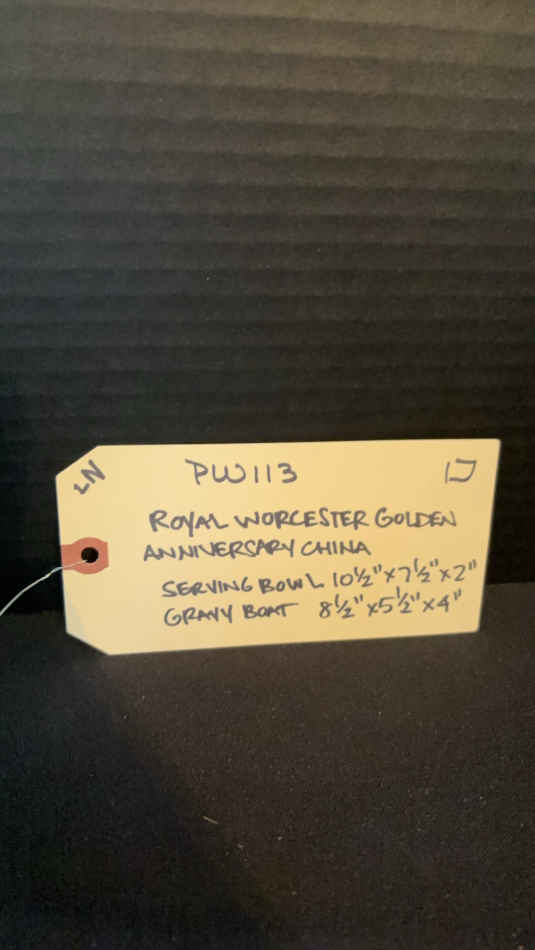 LN
PW113
ROYAL WORCESTER GOLDEN
ANNIVERSARY CHINA
SERVING BOWL 10½"x7½"x2"
GRAVY BOAT 8½"x5½"x4"